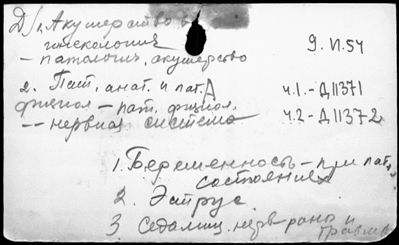 Д/1. Акушерство и
гинекология
9.II.54
— патологич. акушерство
2. Пат. анат. и пат.
физиол — пат. физиол.
ч.1.-Д11371
-- нервная система
ч.2-Д11372
1. Беременность — при пат.
состояниях
2. Эструс.
3 Седалищ. нерв - раны и
травма